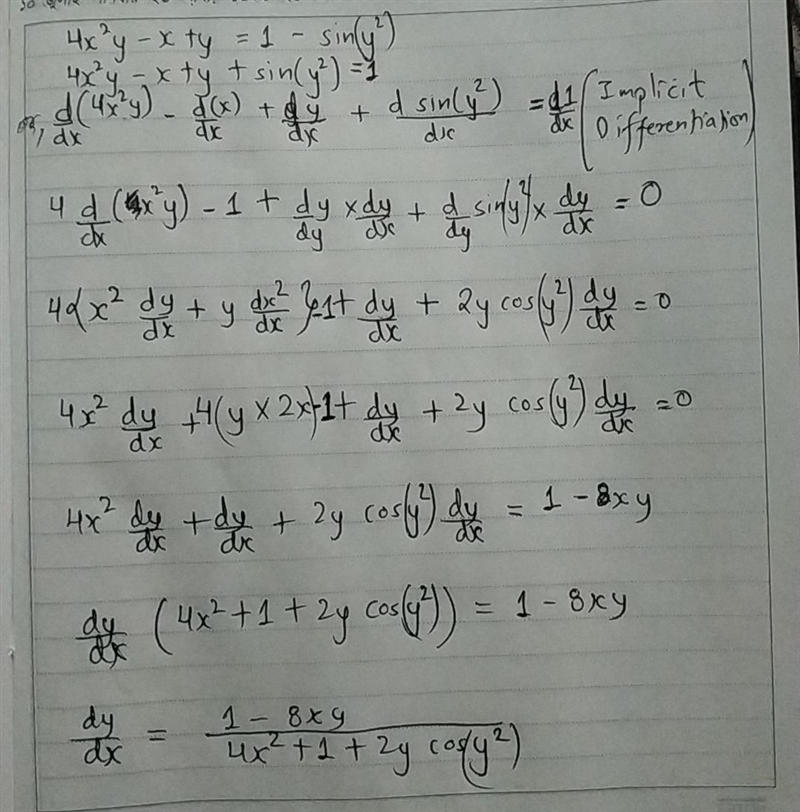 4x²y - x + y = 1 - sin(y²)
4x²y - x + y + sin(y²) = 1
or, d/dx (4x²y) - d(x)/dx + dy/dx + d sin(y²)/dx = d1/dx (Implicit Differentiation)
4 d/dx (x²y) - 1 + dy/dy × dy/dx + d/dy sin(y²) × dy/dx = 0
4{x² dy/dx + y dx²/dx} - 1 + dy/dx + 2y cos(y²) dy/dx = 0
4x² dy/dx + 4(y × 2x) - 1 + dy/dx + 2y cos(y²) dy/dx = 0
4x² dy/dx + dy/dx + 2y cos(y²) dy/dx = 1 - 8xy
dy/dx (4x² + 1 + 2y cos(y²)) = 1 - 8xy
dy/dx = (1 - 8xy)/(4x² + 1 + 2y cos(y²))